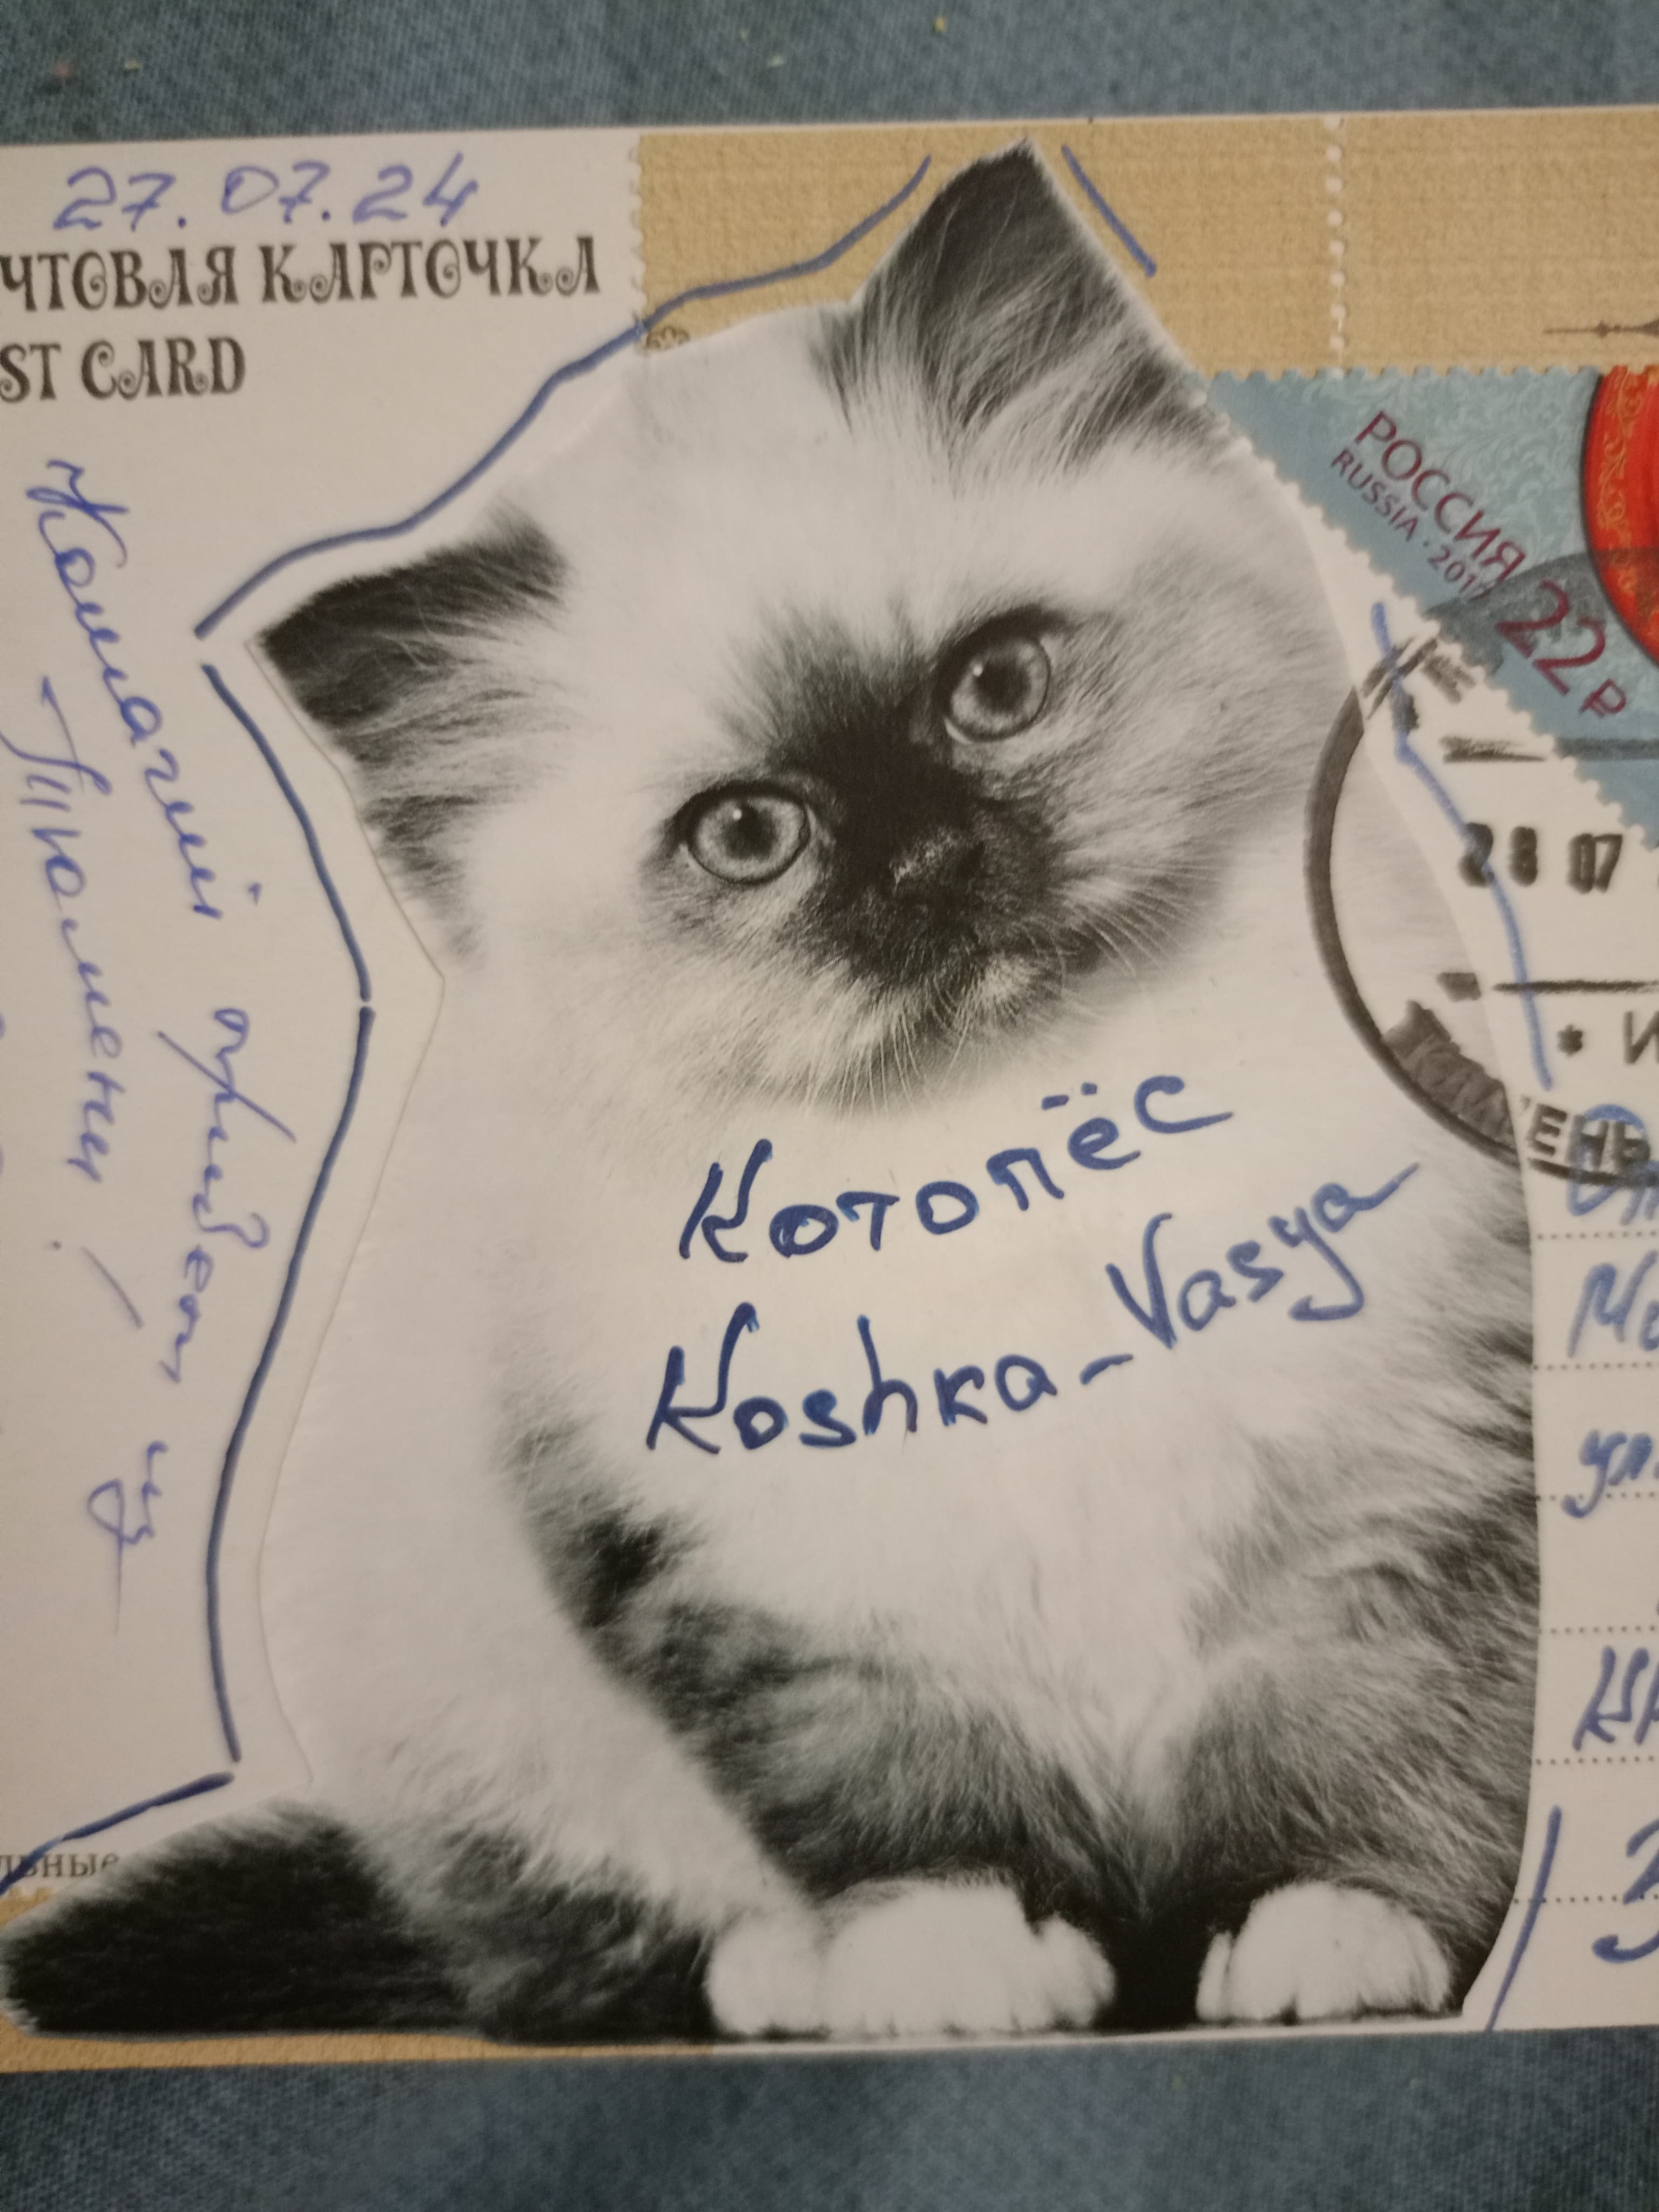 27.07.24
ЧТОВАЯ КАРТОЧКА
ST CARD
Кошачий привет из
Тюмени!
РОССИЯ
RUSSIA · 201
22 Р
28 07
* И
ТЮМЕНЬ
Котопёс
Koshka-Vasya
Мо
ул.
льные